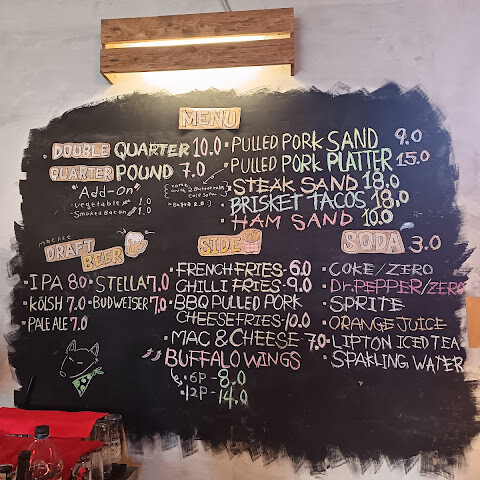 MENU
DOUBLE QUARTER 10.0
QUARTER POUND 7.0
"Add-On"
- Vegetable 1.0
- Smoked Bacon 1.0
· PULLED PORK SAND 9.0
· PULLED PORK PLATTER 15.0
· STEAK SAND 18.0
· BRISKET TACOS 18.0
· HAM SAND 10.0
DRAFT BEER
· IPA 8.0
· STELLA 7.0
· KÖLSH 7.0
· BUDWEISER 7.0
· PALE ALE 7.0
SIDE
· FRENCH FRIES - 6.0
· CHILLI FRIES - 9.0
· BBQ PULLED PORK
CHEESE FRIES - 10.0
· MAC & CHEESE - 7.0
BUFFALO WINGS
· 6P - 8.0
· 12P - 14.0
SODA 3.0
· COKE/ZERO
· Dr. PEPPER/ZERO
· SPRITE
· ORANGE JUICE
· LIPTON ICED TEA
· SPAKLING WATER